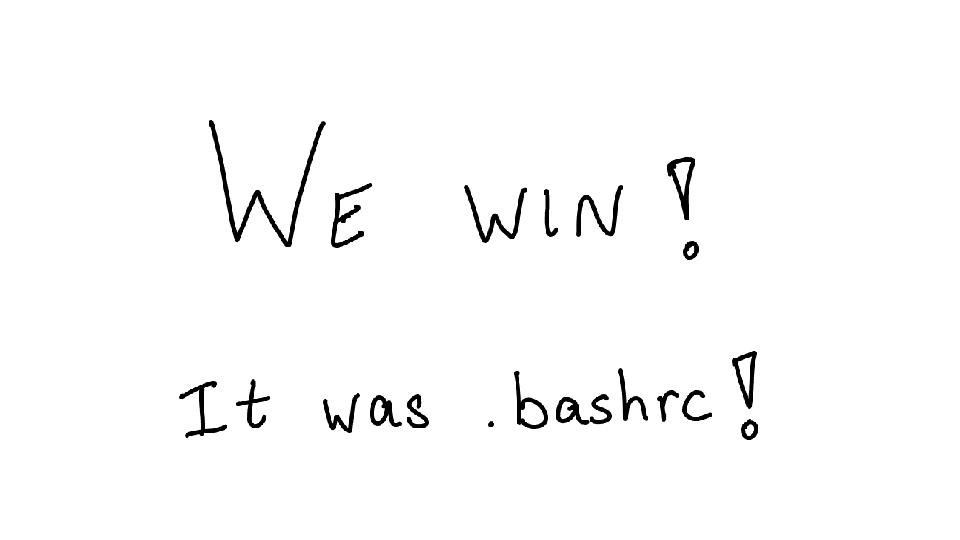 We win!
It was .bashrc!